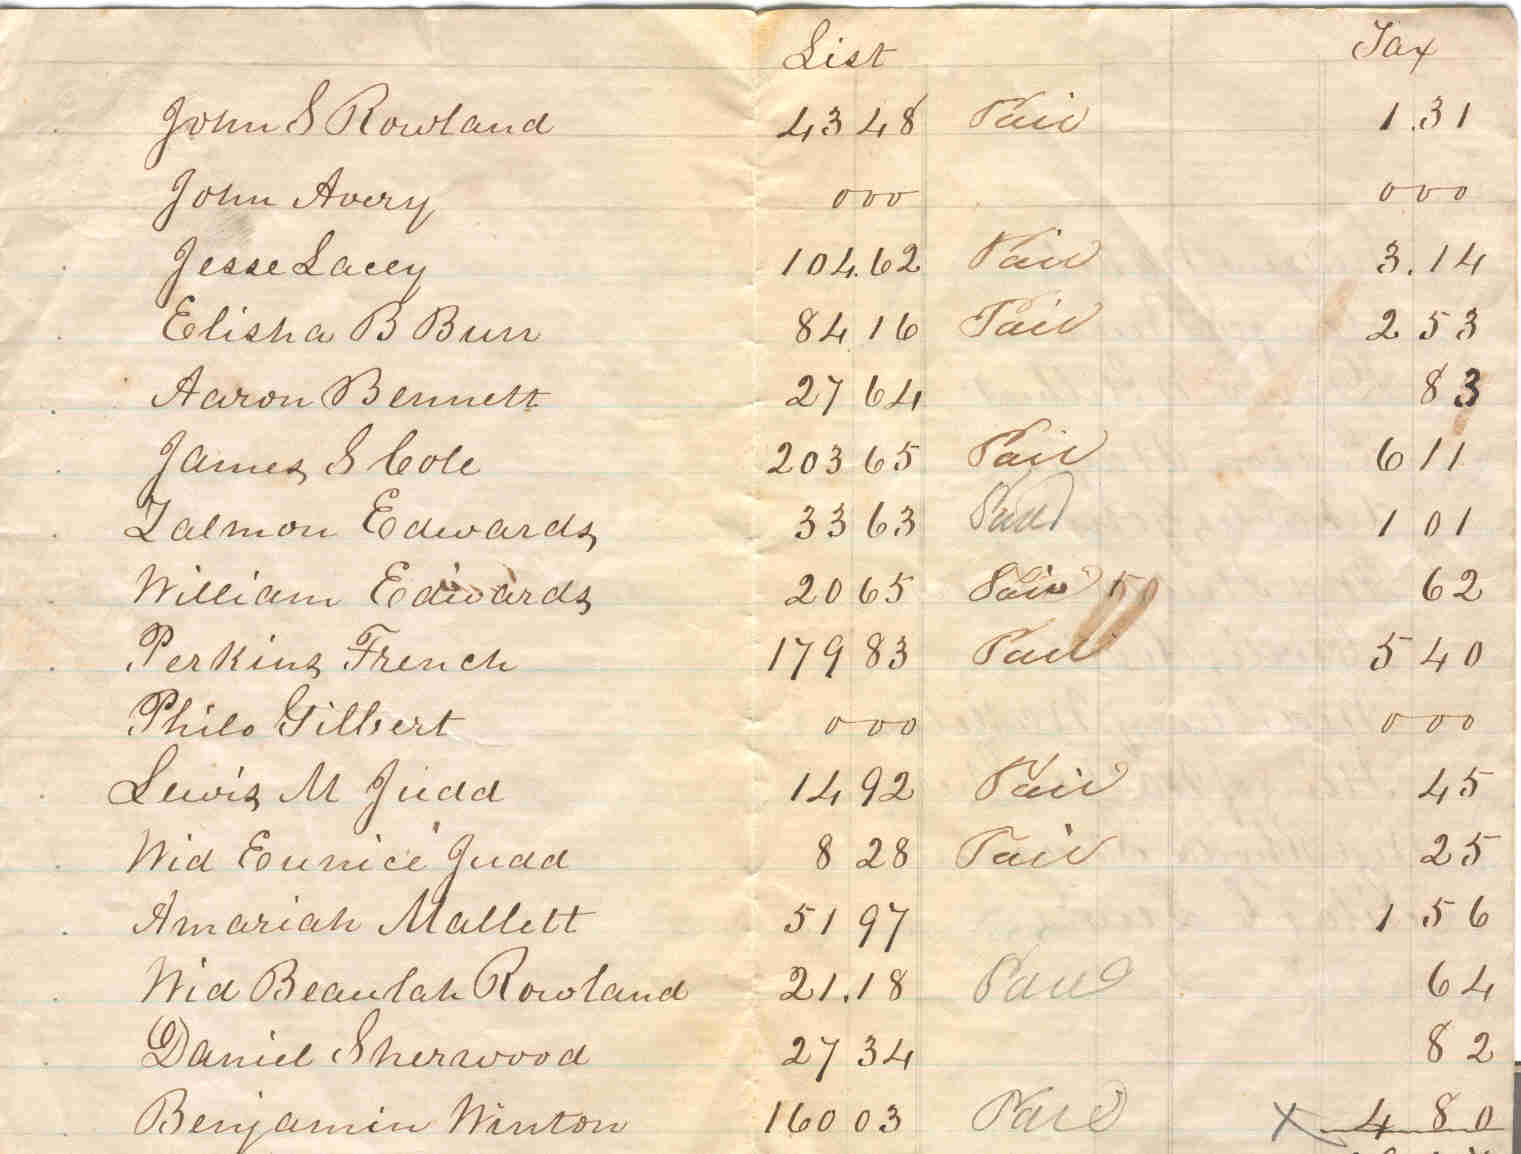 List Tax
John S Rowland 43 48 Paid 1.31
John Avery 000 000
Jesse Lacey 104.62 Paid 3.14
Elisha B Burr 84 16 Paid 2 53
Aaron Bennett 27 64 83
James S Cole 203 65 Paid 6 11
Zalmon Edwards 33 63 Paid 1 01
William Edwards 20 65 Paid 50 62
Perkins French 179 83 Paid 5 40
Philo Gilbert 000 000
Lewis M Judd 14 92 Paid 45
Wid Eunice Judd 8 28 Paid 25
Amariah Mallett 51 97 1 56
Wid Beaulah Rowland 21.18 Paid 64
Daniel Sherwood 27 34 82
Benjamin Winton 160 03 Paid X 4 80